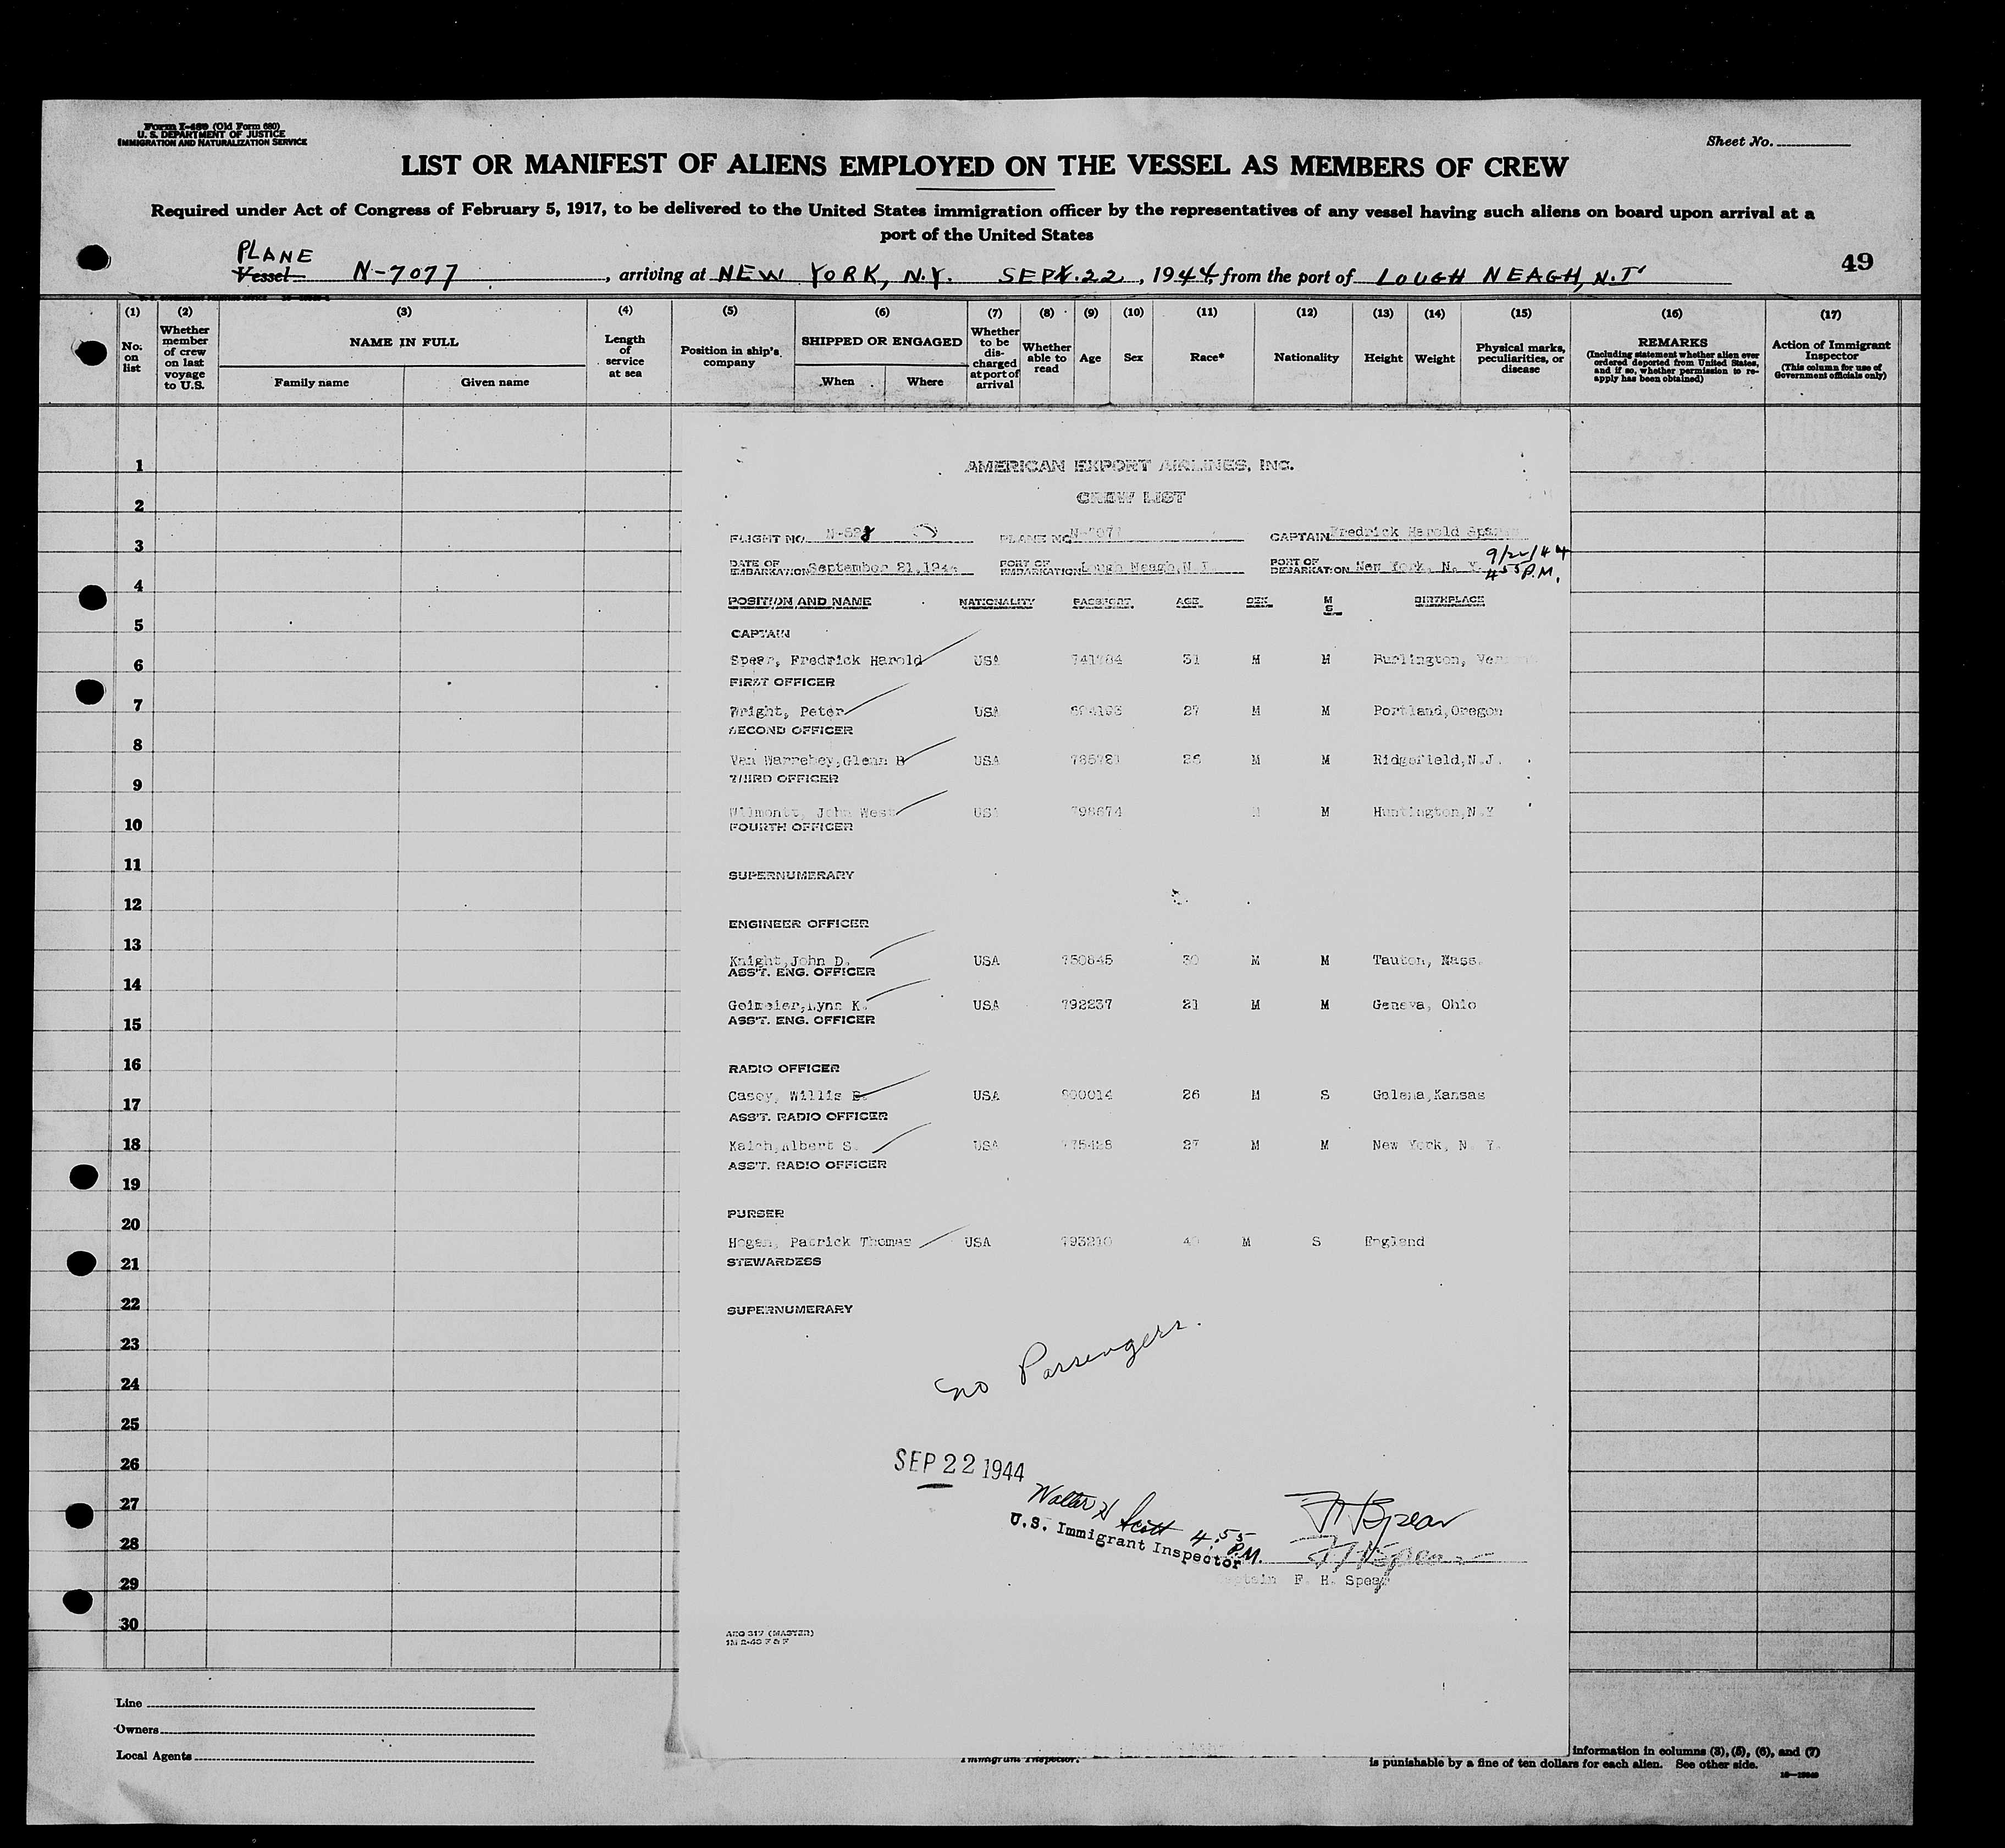 Form I-489 (Old Form 680)
U. S. DEPARTMENT OF JUSTICE
IMMIGRATION AND NATURALIZATION SERVICE
Sheet No.
LIST OR MANIFEST OF ALIENS EMPLOYED ON THE VESSEL AS MEMBERS OF CREW
Required under Act of Congress of February 5, 1917, to be delivered to the United States immigration officer by the representatives of any vessel having such aliens on board upon arrival at a
port of the United States
PLANE
Vessel N-7077, arriving at NEW YORK, N.Y. SEPT. 22, 1944, from the port of LOUGH NEAGH, N.I.
49
(1) (2) (3) (4) (5) (6) (7) (8) (9) (10) (11) (12) (13) (14) (15) (16) (17)
No. on list
Whether member of crew on last voyage to U.S.
NAME IN FULL
Family name
Given name
Length of service at sea
Position in ship's company
SHIPPED OR ENGAGED
When
Where
Whether to be discharged at port of arrival
Whether able to read
Age
Sex
Race*
Nationality
Height
Weight
Physical marks, peculiarities, or disease
REMARKS
(Including statement whether alien ever ordered deported from United States, and if so, whether permission to reapply has been obtained)
Action of Immigrant Inspector
(This column for use of Government officials only)
1
2
3
4
5
6
7
8
9
10
11
12
13
14
15
16
17
18
19
20
21
22
23
24
25
26
27
28
29
30
AMERICAN EXPORT AIRLINES, INC.
CREW LIST
FLIGHT NO. N-528 PLANE NO. N-7077 CAPTAIN Fredrick Harold Spear
9/22/44
DATE OF EMBARKATION September 21,1944 PORT OF EMBARKATION Lough Neagh,N.I. PORT OF DEBARKATION New York, N. Y. 4:55 P.M.
POSITION AND NAME NATIONALITY PASSPORT AGE SEX M S BIRTHPLACE
CAPTAIN
Spear, Fredrick Harold USA 741784 31 M M Burlington,
FIRST OFFICER
Wright, Peter USA 27 M M Portland,Oregon
SECOND OFFICER
Van Warrebey,Glenn B USA 785781 26 M M Ridgefield,N.J.
THIRD OFFICER
Wilmontt, John West USA 798674 M M Huntington,N.Y
FOURTH OFFICER
SUPERNUMERARY
ENGINEER OFFICER
Knight,John D. USA 750845 30 M M Tauton, Mass.
ASS'T. ENG. OFFICER
Golmeier,Lynn K. USA 792237 21 M M Geneva, Ohio
ASS'T. ENG. OFFICER
RADIO OFFICER
Casey, Willis E. USA 900014 26 M S Galena,Kansas
ASS'T. RADIO OFFICER
Kaich,Albert S. USA 775428 27 M M New York, N. Y.
ASS'T. RADIO OFFICER
PURSER
Hogan, Patrick Thomas USA 793210 M S England
STEWARDESS
SUPERNUMERARY
No Passengers.
SEP 22 1944
Walter H Scott 4:55 P.M.
U.S. Immigrant Inspector
F H Spear
F H Spear
Captain F. H. Spear
AEO 317 (MASTER)
1M 2-43 F & F
Line
Owners
Local Agents
Immigrant Inspector.
information in columns (3), (5), (6), and (7)
is punishable by a fine of ten dollars for each alien. See other side.